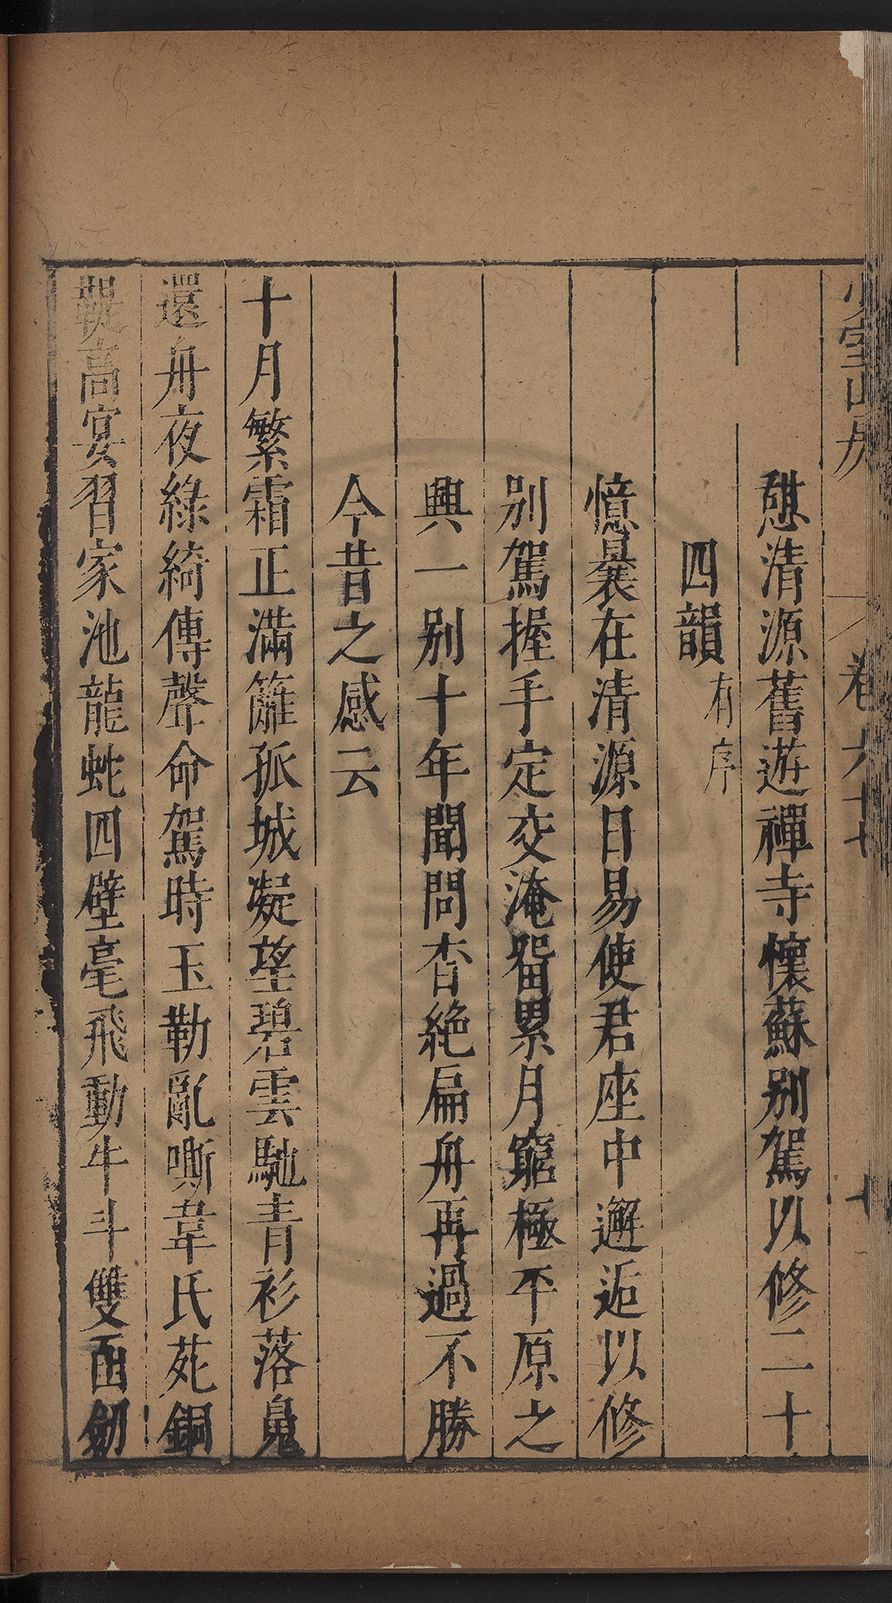 少室山房 卷六十七 十
憩清源舊遊禪寺懷蘇别駕以修二十
四韻有序
憶曩在清源日易使君座中邂逅以修
别駕握手定交淹留累月窮極平原之
興一别十年聞問杳絶扁舟再過不勝
今昔之感云
十月繁霜正滿籬孤城凝望碧雲馳青衫落鳧
還舟夜綠綺傳聲命駕時玉勒亂嘶韋氏苑銅
鞮高宴習家池龍蛇四壁毫飛動牛斗雙函劒